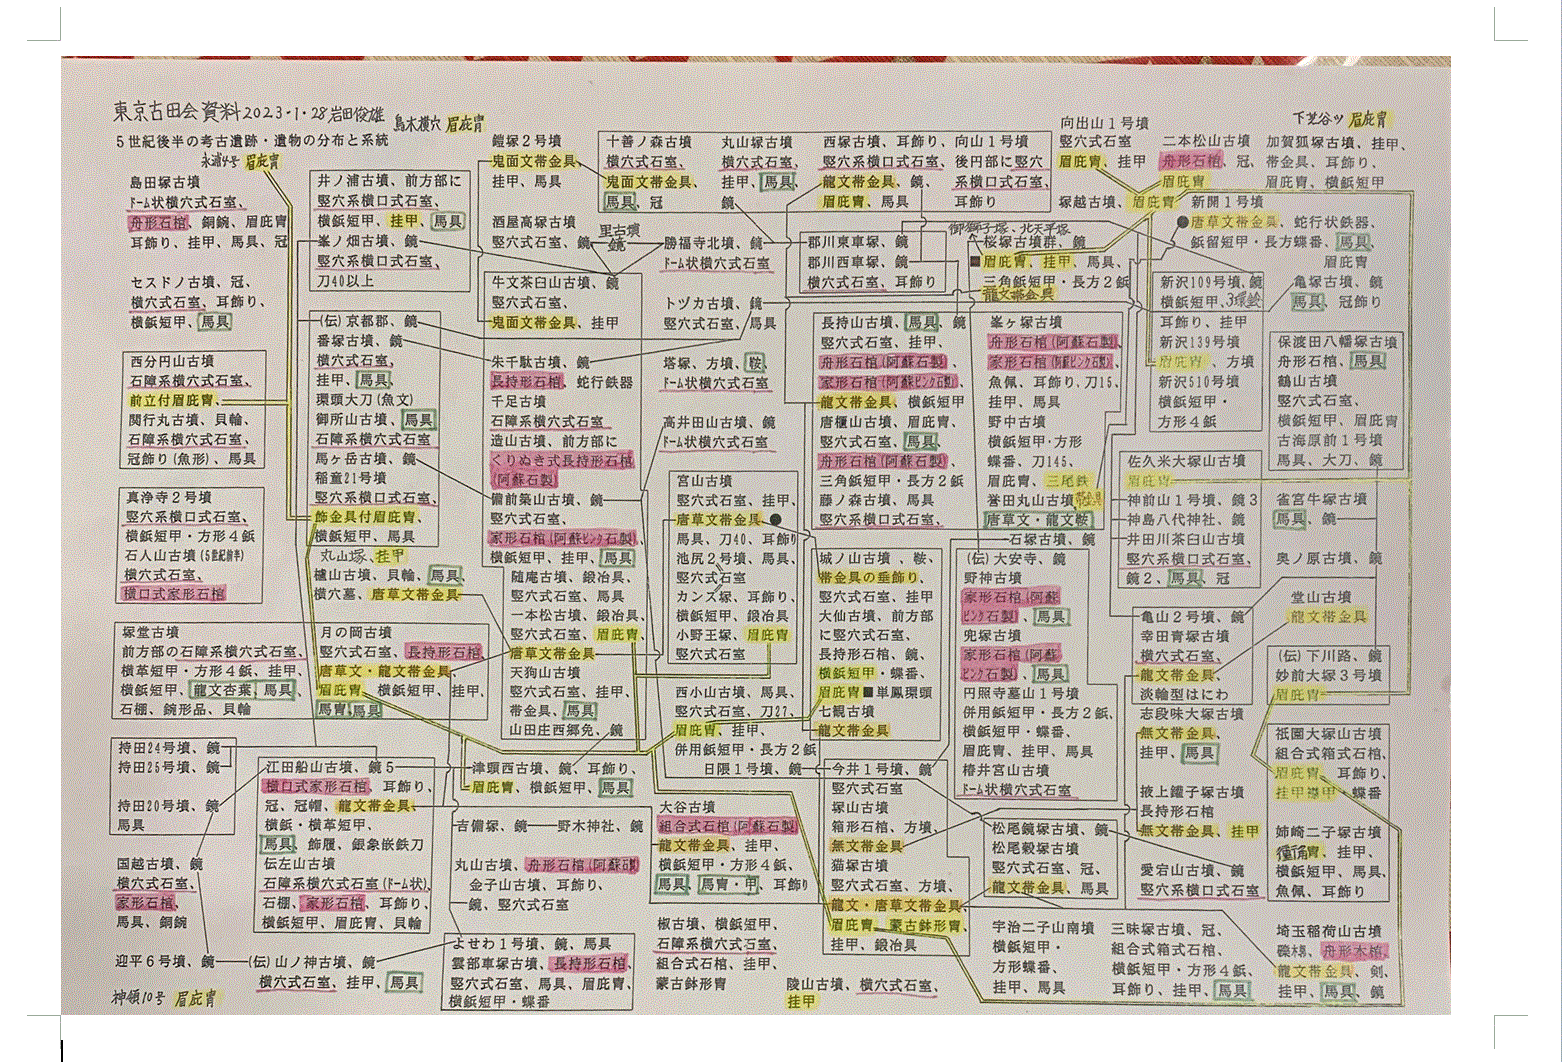 東京古田会資料2023-1-28岩田俊雄
島木横穴 眉庇冑
下芝谷ツ 眉庇冑
5世紀後半の考古遺跡・遺物の分布と系統
永浦4号 眉庇冑
島田塚古墳
ドーム状横穴式石室、
舟形石棺、銅鋺、眉庇冑
耳飾り、挂甲、馬具、冠
セスドノ古墳、冠、
横穴式石室、耳飾り、
横鋲短甲、馬具
西分円山古墳
石障系横穴式石室、
前立付眉庇冑、
関行丸古墳、貝輪、
石障系横穴式石室、
冠飾り(魚形)、馬具
真浄寺2号墳
竪穴系横口式石室、
横鋲短甲・方形4鋲
石人山古墳(5世紀前半)
横穴式石室、
横口式家形石棺
塚堂古墳
前方部の石障系横穴式石室、
横革短甲・方形4鋲、挂甲、
横鋲短甲、龍文杏葉、馬具、
石棚、鋺形品、貝輪
持田24号墳、鏡
持田25号墳、鏡
持田20号墳、鏡
馬具
国越古墳、鏡
横穴式石室、
家形石棺、
馬具、銅鋺
迎平6号墳、鏡
神領10号 眉庇冑
井ノ浦古墳、前方部に
竪穴系横口式石室、
横鋲短甲、挂甲、馬具
峯ノ畑古墳、鏡
竪穴系横口式石室、
刀40以上
(伝)京都郡、鏡
番塚古墳、鏡
横穴式石室、
挂甲、馬具、
環頭大刀(魚文)
御所山古墳、馬具
石障系横穴式石室
馬ヶ岳古墳、鏡
稲童21号墳
竪穴系横口式石室、
飾金具付眉庇冑、
横鋲短甲、馬具
丸山塚、挂甲
櫨山古墳、貝輪、馬具
横穴墓、唐草文帯金具
月の岡古墳
竪穴式石室、長持形石棺、
唐草文・龍文帯金具
眉庇冑、横鋲短甲、挂甲、
馬冑、馬具
江田船山古墳、鏡5
横口式家形石棺、耳飾り、
冠、冠帽、龍文帯金具
横鋲・横革短甲、
馬具、飾履、銀象嵌鉄刀
伝左山古墳
石障系横穴式石室(ドーム状)、
石棚、家形石棺、耳飾り、
横鋲短甲、眉庇冑、貝輪
(伝)山ノ神古墳、鏡
横穴式石室、挂甲、馬具
鎧塚2号墳
鬼面文帯金具、
挂甲、馬具
酒屋高塚古墳
竪穴式石室、鏡
里古墳
鏡
牛文茶臼山古墳、鏡
竪穴式石室、
鬼面文帯金具、挂甲
朱千駄古墳、鏡
長持形石棺、蛇行鉄器
千足古墳
石障系横穴式石室
造山古墳、前方部に
くりぬき式長持形石棺
(阿蘇石製)
備前築山古墳、鏡
竪穴式石室、
家形石棺(阿蘇ピンク石製)、
横鋲短甲、挂甲、馬具
随庵古墳、鍛冶具、
竪穴式石室、馬具
一本松古墳、鍛冶具、
竪穴式石室、眉庇冑
唐草文帯金具
天狗山古墳
竪穴式石室、挂甲、
帯金具、馬具
山田庄西郷免、鏡
津頭西古墳、鏡、耳飾り、
眉庇冑、横鋲短甲、馬具
吉備塚、鏡 野木神社、鏡
丸山古墳、舟形石棺(阿蘇石製)
金子山古墳、耳飾り、
鏡、竪穴式石室
よせわ1号墳、鏡、馬具
雲部車塚古墳、長持形石棺、
竪穴式石室、馬具、眉庇冑、
横鋲短甲・蝶番
十善ノ森古墳
横穴式石室、
鬼面文帯金具、
馬具、冠
丸山塚古墳
横穴式石室、
挂甲、馬具、
鏡
西塚古墳、耳飾り、
竪穴系横口式石室、
龍文帯金具、鏡、
眉庇冑、馬具
向山1号墳
後円部に竪穴
系横口式石室、
耳飾り
勝福寺北墳、鏡
ドーム状横穴式石室
トヅカ古墳、鏡
竪穴式石室、馬具
塔塚、方墳、鞍
ドーム状横穴式石室
高井田山古墳、鏡
ドーム状横穴式石室
宮山古墳
竪穴式石室、挂甲、
唐草文帯金具、●
馬具、刀40、耳飾り
池尻2号墳、馬具、
竪穴式石室
カンス塚、耳飾り、
横鋲短甲、鍛冶具
小野王塚、眉庇冑
竪穴式石室
西小山古墳、馬具、
竪穴式石室、刀27、
眉庇冑、挂甲、
併用鋲短甲・長方2鋲
日隈1号墳、鏡
大谷古墳
組合式石棺(阿蘇石製)
龍文帯金具、挂甲、
横鋲短甲・方形4鋲、
馬具、馬冑・甲、耳飾り
椒古墳、横鋲短甲、
石障系横穴式石室、
組合式石棺、挂甲、
蒙古鉢形冑
陵山古墳、横穴式石室、
挂甲
郡川東車塚、鏡
郡川西車塚、鏡
横穴式石室、耳飾り
長持山古墳、馬具、鏡
竪穴式石室、挂甲、
舟形石棺(阿蘇石製)
家形石棺(阿蘇ピンク石製)、
龍文帯金具、横鋲短甲
唐櫃山古墳、眉庇冑
竪穴式石室、馬具、
舟形石棺(阿蘇石製)
三角鋲短甲・長方2鋲
藤ノ森古墳、馬具
竪穴系横穴式石室、
城ノ山古墳、鞍、
帯金具の垂飾り、
竪穴式石室、挂甲
大仙古墳、前方部
に竪穴式石室、
長持形石棺、鏡、
横鋲短甲・蝶番、
眉庇冑■単鳳環頭
七観古墳
龍文帯金具
今井1号墳、鏡
竪穴式石室
塚山古墳
箱形石棺、方墳、
無文帯金具
猫塚古墳
竪穴式石室、方墳、
龍文・唐草文帯金具
眉庇冑、蒙古鉢形冑、
挂甲、鍛冶具
御獅子塚、北天平塚
桜塚古墳群、鏡
■眉庇冑、挂甲、馬具、
三角鋲短甲・長方2鋲
龍文帯金具
峯ヶ塚古墳
舟形石棺(阿蘇石製)、
家形石棺(阿蘇ピンク石製)、
魚佩、耳飾り、刀15、
挂甲、馬具
野中古墳
横鋲短甲・方形
蝶番、刀145、
眉庇冑、三尾鉄
誉田丸山古墳、
唐草文・龍文鞍
石塚古墳、鏡
(伝)大安寺、鏡
野神古墳
家形石棺(阿蘇
ピンク石製)、馬具
兜塚古墳
家形石棺(阿蘇
ピンク石製)、馬具
円照寺墓山1号墳
併用鋲短甲・長方2鋲、
横鋲短甲・蝶番、
眉庇冑、挂甲、馬具
椿井宮山古墳
ドーム状横穴式石室
松尾鏡塚古墳、鏡
松尾穀塚古墳
竪穴式石室、冠、
龍文帯金具、馬具
宇治二子山南墳
横鋲短甲・
方形蝶番、
挂甲、馬具
向出山1号墳
竪穴式石室
眉庇冑、挂甲
塚越古墳、眉庇冑
二本松山古墳
舟形石棺、冠、
眉庇冑
加賀狐塚古墳、挂甲、
帯金具、耳飾り、
眉庇冑、横鋲短甲
新開1号墳
●唐草文帯金具、蛇行状鉄器、
鋲留短甲・長方蝶番、馬具、
眉庇冑
新沢109号墳、鏡
横鋲短甲、3環鈴
耳飾り、挂甲
新沢139号墳
眉庇冑、方墳
新沢510号墳
横鋲短甲・
方形4鋲
亀塚古墳、鏡
馬具、冠飾り
保渡田八幡塚古墳
舟形石棺、馬具
鶴山古墳
竪穴式石室、
横鋲短甲、眉庇冑
古海原前1号墳
馬具、大刀、鏡
佐久米大塚山古墳
眉庇冑
神前山1号墳、鏡3
神島八代神社、鏡
井田川茶臼山古墳
竪穴系横口式石室、
鏡2、馬具、冠
雀宮牛塚古墳
馬具、鏡
奥ノ原古墳、鏡
堂山古墳
龍文帯金具
亀山2号墳、鏡
幸田青塚古墳
横穴式石室、
龍文帯金具
淡輪型はにわ
志段味大塚古墳
無文帯金具、
挂甲、馬具
(伝)下川路、鏡
妙前大塚3号墳
眉庇冑
祇園大塚山古墳
組合式箱式石棺、
眉庇冑、耳飾り、
挂甲、蝶番
姉崎二子塚古墳
冑、挂甲、
横鋲短甲、馬具、
魚佩、耳飾り
掖上鑵子塚古墳
長持形石棺
無文帯金具、挂甲
愛宕山古墳、鏡
竪穴系横口式石室
三昧塚古墳、冠、
組合式箱式石棺、
横鋲短甲・方形4鋲、
耳飾り、挂甲、馬具
埼玉稲荷山古墳
礫槨、舟形木棺、
龍文帯金具、剣、
挂甲、馬具、鏡